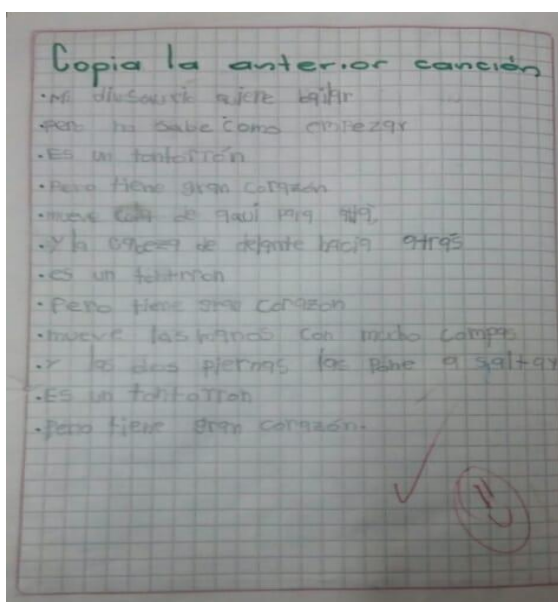 Copia la anterior canción
·Mi dinosaurio quiere bailar
pero no sabe como empezar
·ES un tontorrón
·Pero tiene gran corazón
·mueve de aquí para
·Y la cabeza de delante hacia atrás
·es un tontorron
·Pero tiene gran corazon
·mueve las manos con mucho compas
·Y las dos piernas las pone a saltar
·ES un tontorron
·pero tiene gran corazón.